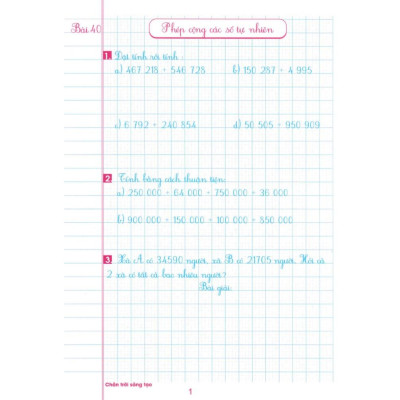 Bài 40
Phép cộng các số tự nhiên
1. Đặt tính rồi tính :
a) 467 218 + 546 728 b) 150 287 + 4 995
c) 6 792 + 240 854 d) 50 505 + 950 909
2 Tính bằng cách thuận tiện:
a) 250 000 + 64 000 + 750 000 + 36 000
b) 900 000 + 150 000 + 100 000 + 850 000
3. Xã A có 34590 người, xã B có 21705 người. Hỏi cả
2 xã có tất cả bao nhiêu người?
Bài giải
Chân trời sáng tạo
1